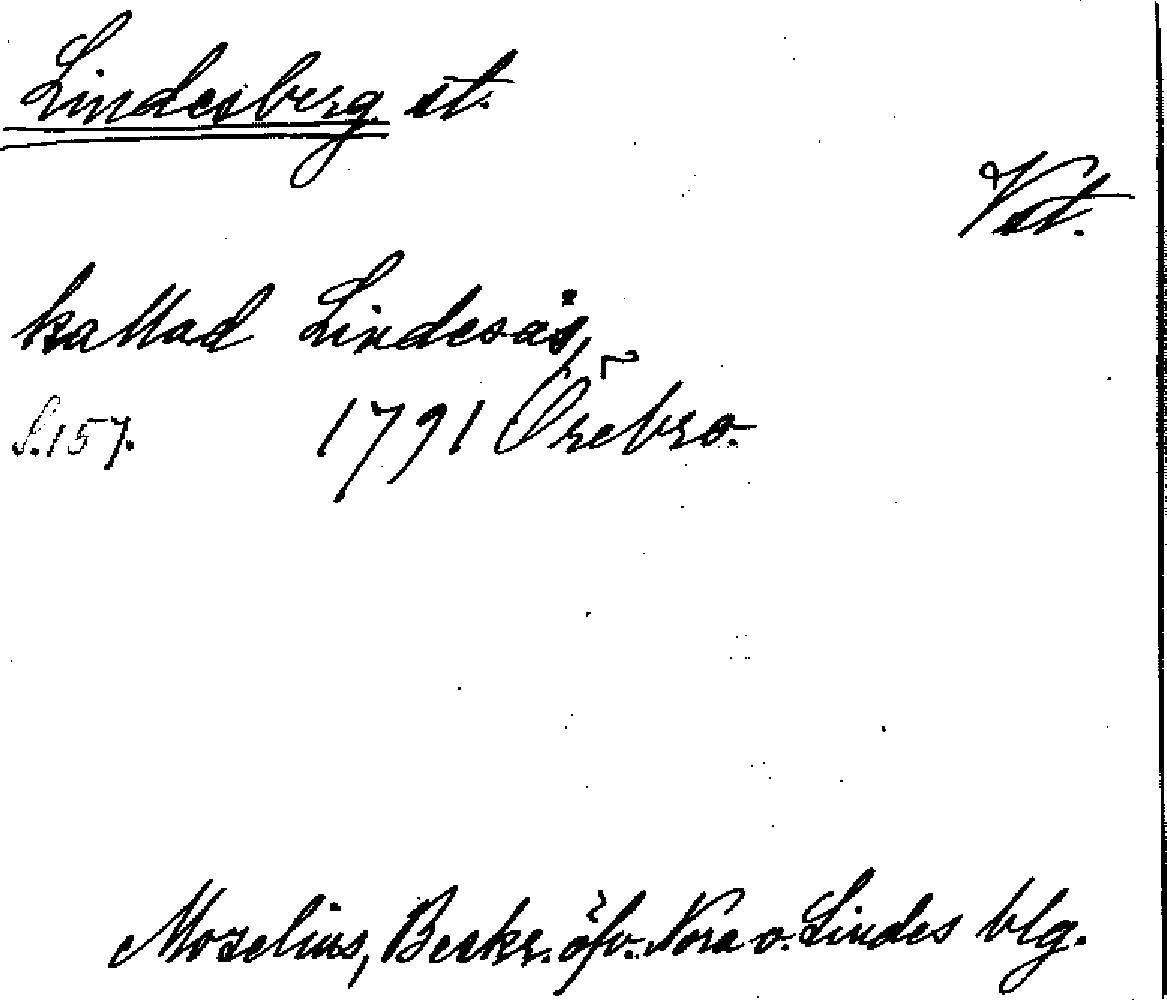 Lindesberg st.
Vst.
kallad Lindesås,
S. 157. 1791 Örebro.
Moselius, Beskr. öfv. Nora o. Lindes blg.